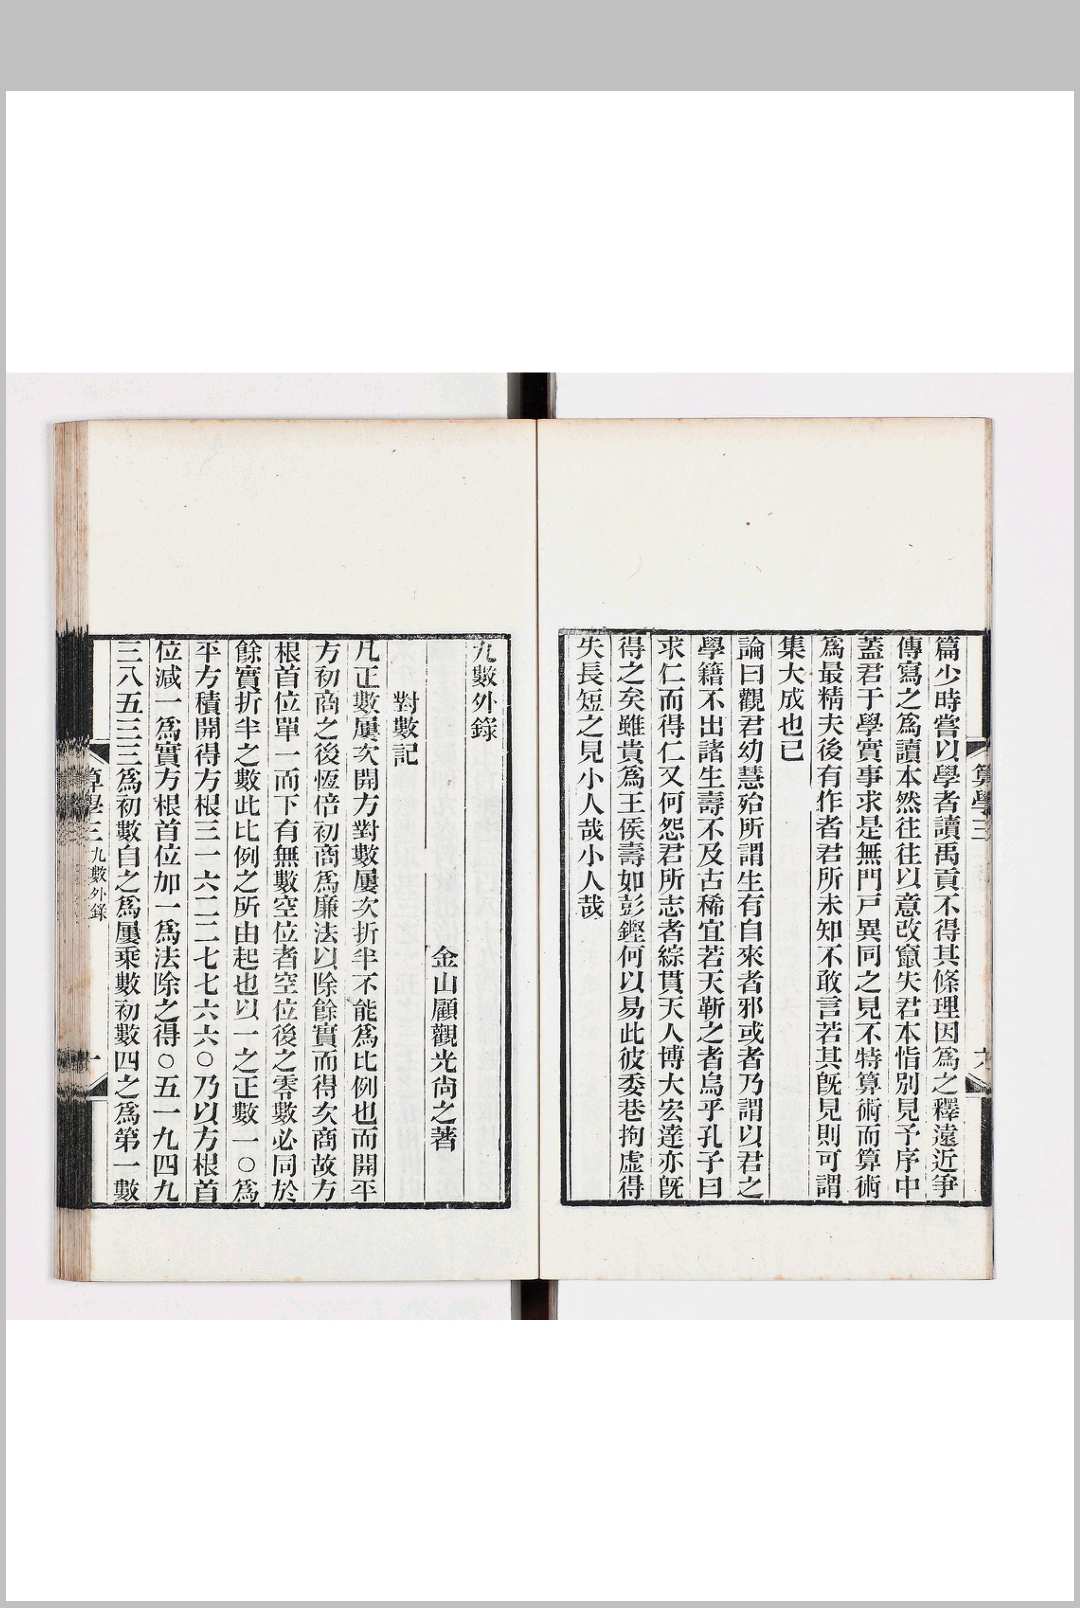 篇少時嘗以學者讀禹貢不得其條理因爲之釋遠近爭
傳寫之爲讀本然往往以意改竄失君本恉別見予序中
蓋君于學實事求是無門戸異同之見不特算術而算術
爲最精夫後有作者君所未知不敢言若其旣見則可謂
集大成也已
論曰觀君幼慧殆所謂生有自來者邪或者乃謂以君之
學籍不出諸生壽不及古稀宜若天靳之者烏乎孔子曰
求仁而得仁又何怨君所志者綜貫天人博大宏達亦旣
得之矣雖貴爲王侯壽如彭鏗何以易此彼委巷拘虛得
失長短之見小人哉小人哉
算學三
六
九數外錄
金山顧觀光尙之著
對數記
凡正數屢次開方對數屢次折半不能爲比例也而開平
方初商之後恆倍初商爲廉法以除餘實而得次商故方
根首位單一而下有無數空位者空位後之零數必同於
餘實折半之數此比例之所由起也以一之正數一〇爲
平方積開得方根三一六二二七七六六〇乃以方根首
位減一爲實方根首位加一爲法除之得〇五一九四九
三八五三三三爲初數自之爲屢乘數初數四之爲第一數
算學三
九數外錄
一